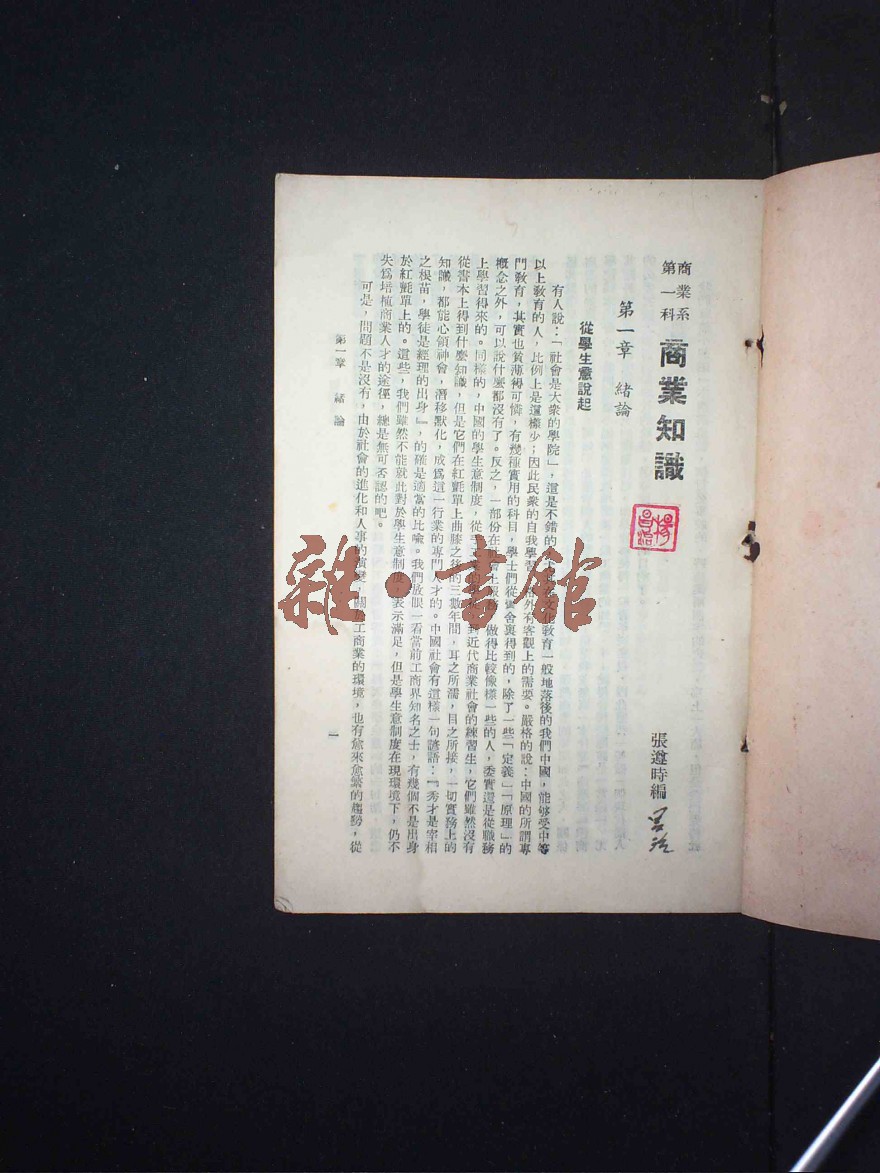 商業系
第一科
商業知識
張遵時編
第一章 緒論
從學生意說起
有人說：「社會是大衆的學院」，這是不錯的
文化教育一般地落後的我們中國，能够受中等
以上教育的人，比例上是這樣少；因此民衆的自我學習
外有客觀上的需要。嚴格的說：中國的所謂專
門教育，其實也貧薄得可憐，有幾種實用的科目，學士們從黌舍裏得到的，除了一些「定義」「原理」的
概念之外，可以說什麼都沒有了。反之，一部份在社會上服務
做得比較像樣一些的人，委實還是從職務
上學習得來的。同樣的，中國的學生意制度，從手工業
到近代商業社會的練習生，它們雖然沒有
從書本上得到什麼知識，但是它們在紅氈單上曲膝之後的三數年間，耳之所濡，目之所接，一切實務上的
知識，都能心領神會，潛移默化，成爲這一行業的專門人才的。中國社會有這樣一句諺語：『秀才是宰相
之根苗，學徒是經理的出身』，的確是適當的比喻。我們放眼一看當前工商界知名之士，有幾個不是出身
於紅氈單上的。這些，我們雖然不能就此對於學生意制度，表示滿足，但是學生意制度在現環境下，仍不
失爲培植商業人才的途徑，總是無可否認的吧。
可是，問題不是沒有，由於社會的進化和人事的演變，關於工商業的環境，也有愈來愈繁的趨勢，從
第一章 緒論
一
雜·書館